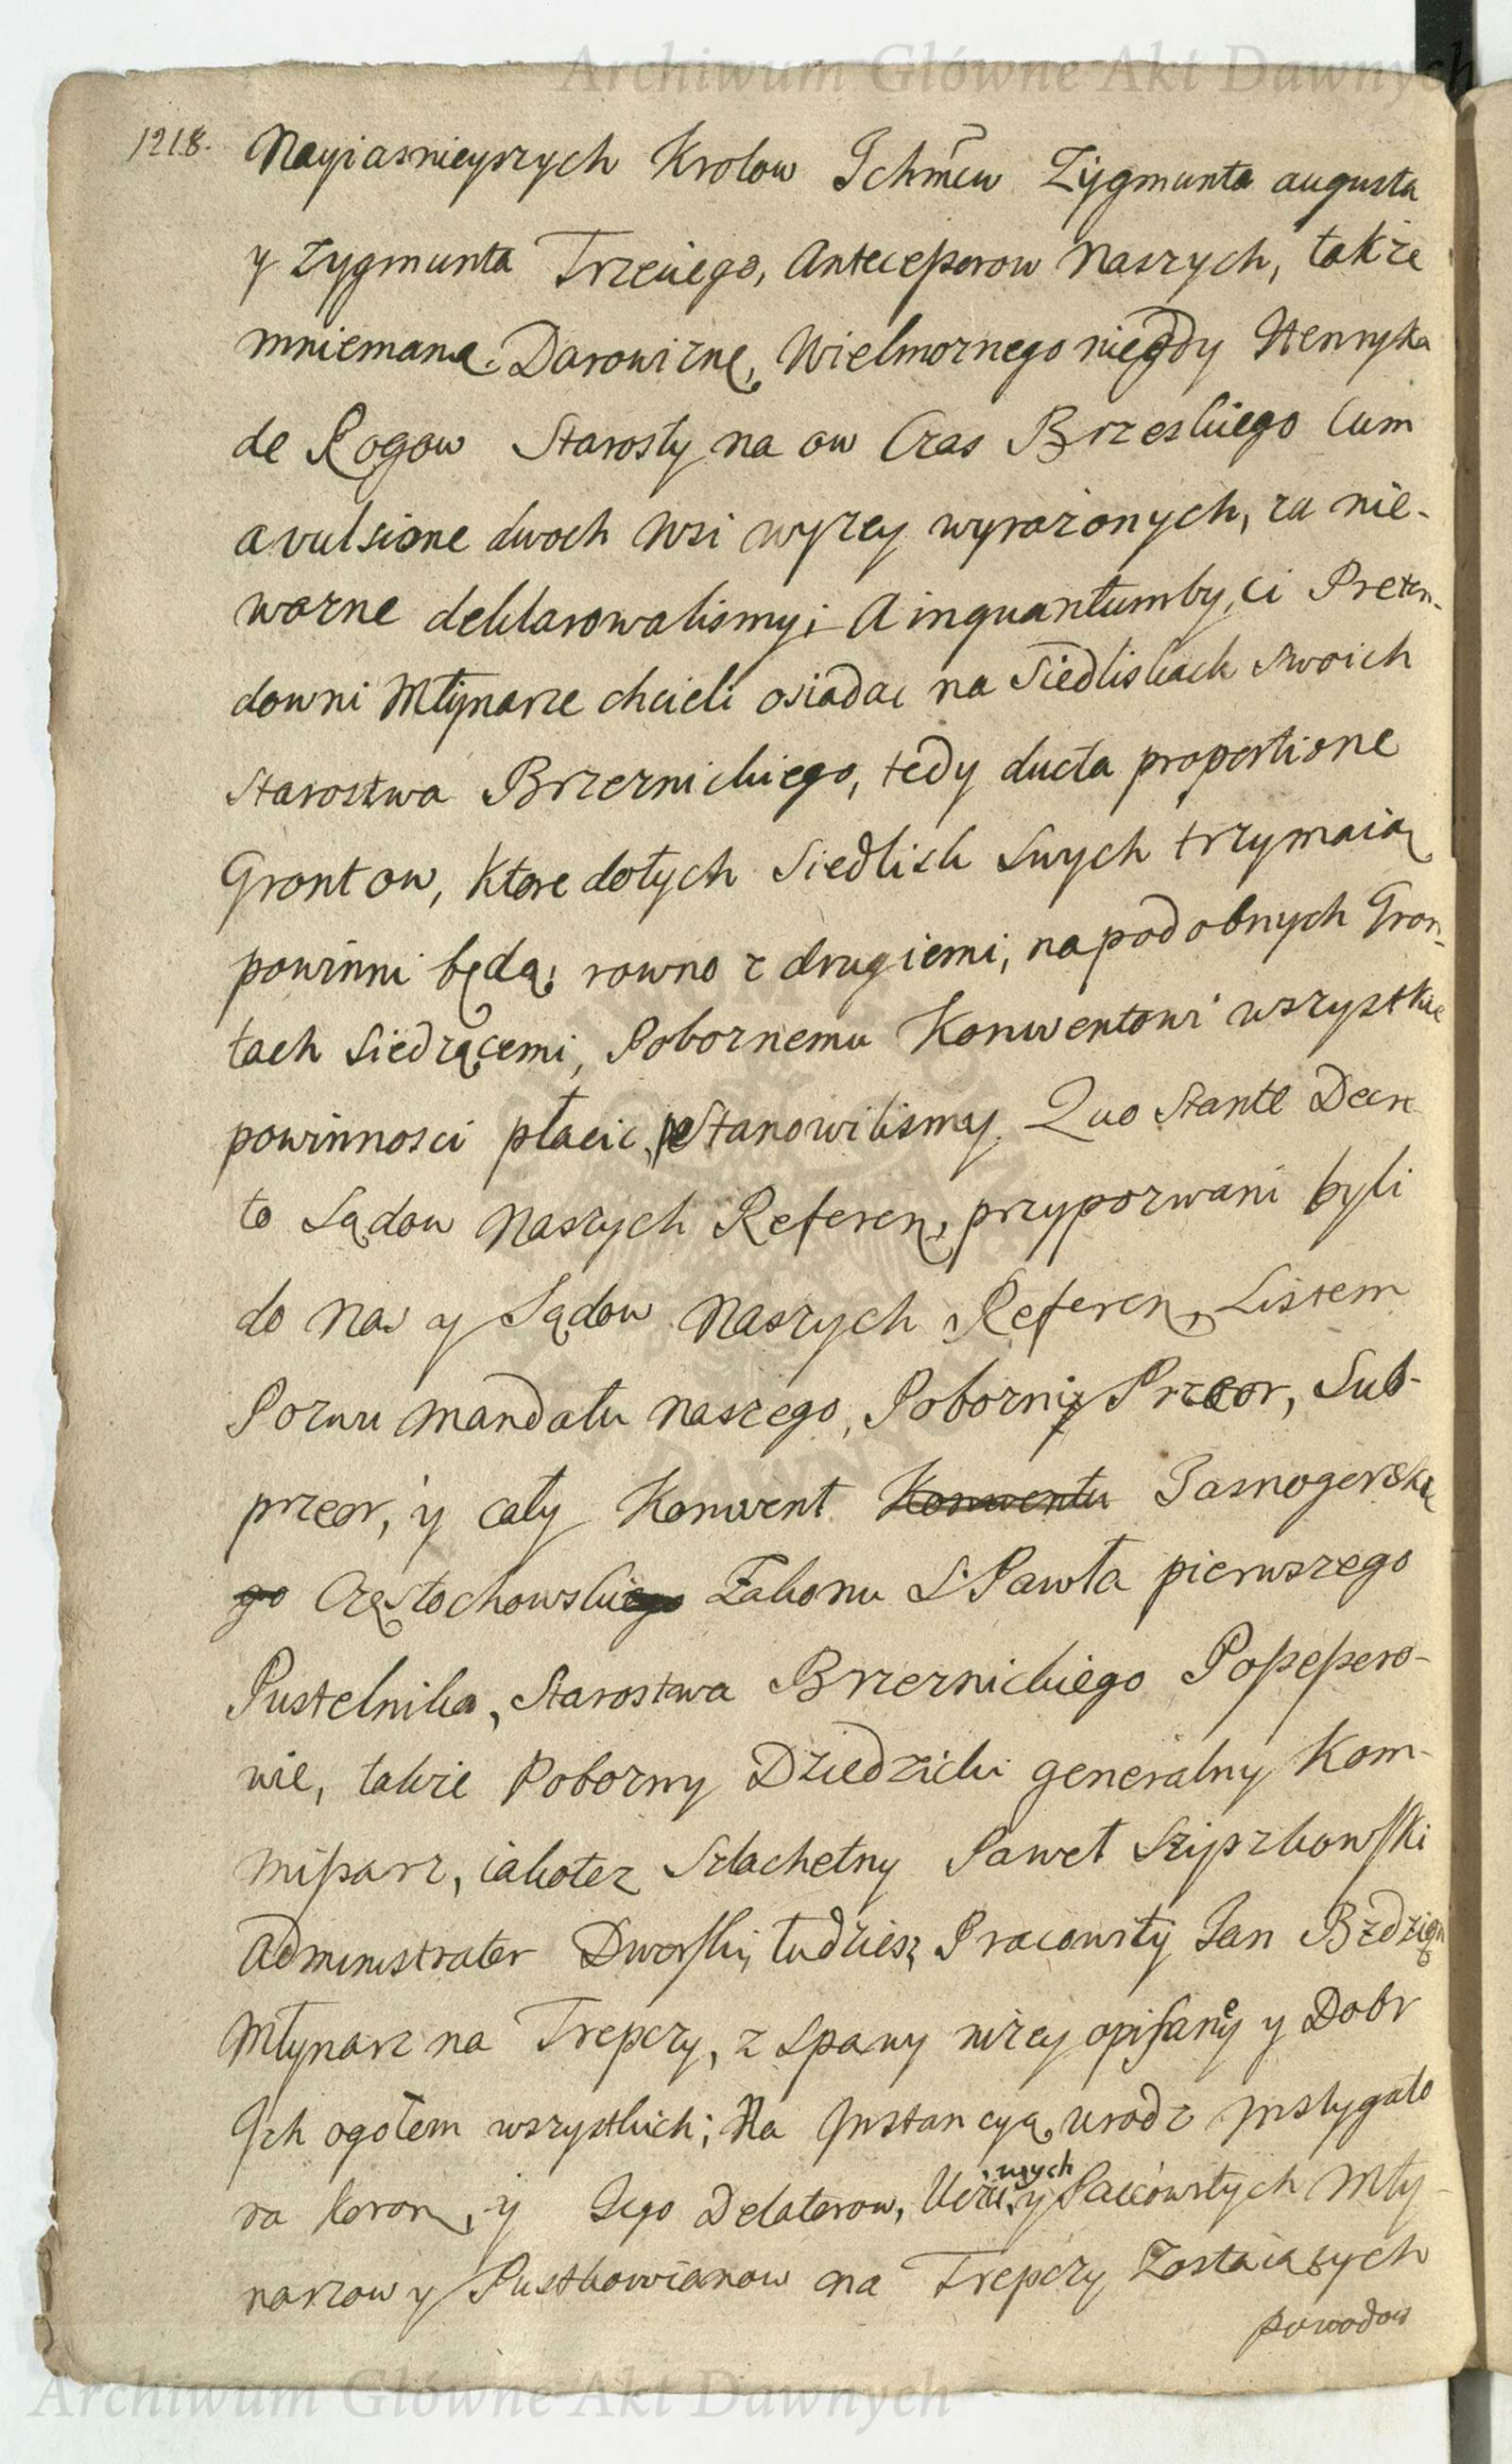 Archiwum Główne Akt Dawnych
1218. Nayiasnieyszych Krolow Ichmćiw Zygmunta augusta
y Zygmunta Trzeciego, Antecessorow Naszych, także
mniemaną Darowiznę, Wielmoznego niegdy Henryka
de Rogow Starosty na ow Czas Brzeskiego Cum
avulsione dwoch Wsi wyzey wyrażonych, za nie-
wazne deklarowalismy; A inquantumby, ci Preten-
downi Młynarze chcieli osiadać na Siedliskach Swoich
Starostwa Brzeznickiego, tedy ducta proportione
Grontow, ktore do tych Siedlisk Swych trzymaią
powinni będą, rowno z drugiemi, na podobnych Gron-
tach Siedzącemi, Poboznemu Konwentowi wszystkie
powinnosci płacic, postanowilismy. Quo Stante Decre
to Sądow Naszych Referen, przypozwani byli
do Nas y Sądow Naszych Referen, Listem
Pozwu Mandatu Naszego, Pobozni Przeor, Sub-
przeor, y cały Konwent Konwentu Jasnogorski
go Częstochowskiego Zakonu S. Pawła pierwszego
Pustelnika, Starostwa Brzeznickiego Possesso-
wie, także Pobozny Dziedzicki generalny Kom-
missarz, iakotez Szlachetny Paweł Szipzkowski
Administrator Dworski, tudziesz Pracowity Jan Bzdzion
Młynarz na Trepczy, z Sprawy nizey opisaney y Dobr
Ich ogołem wszystkich; Na Instancyą urodz Instygato
ra Koron, y Jego Delatorow, Ucżciwych y Pracowitych Mły-
narzow y Pustkowianow na Trepczy Zostaiących
powodow
Archiwum Główne Akt Dawnych